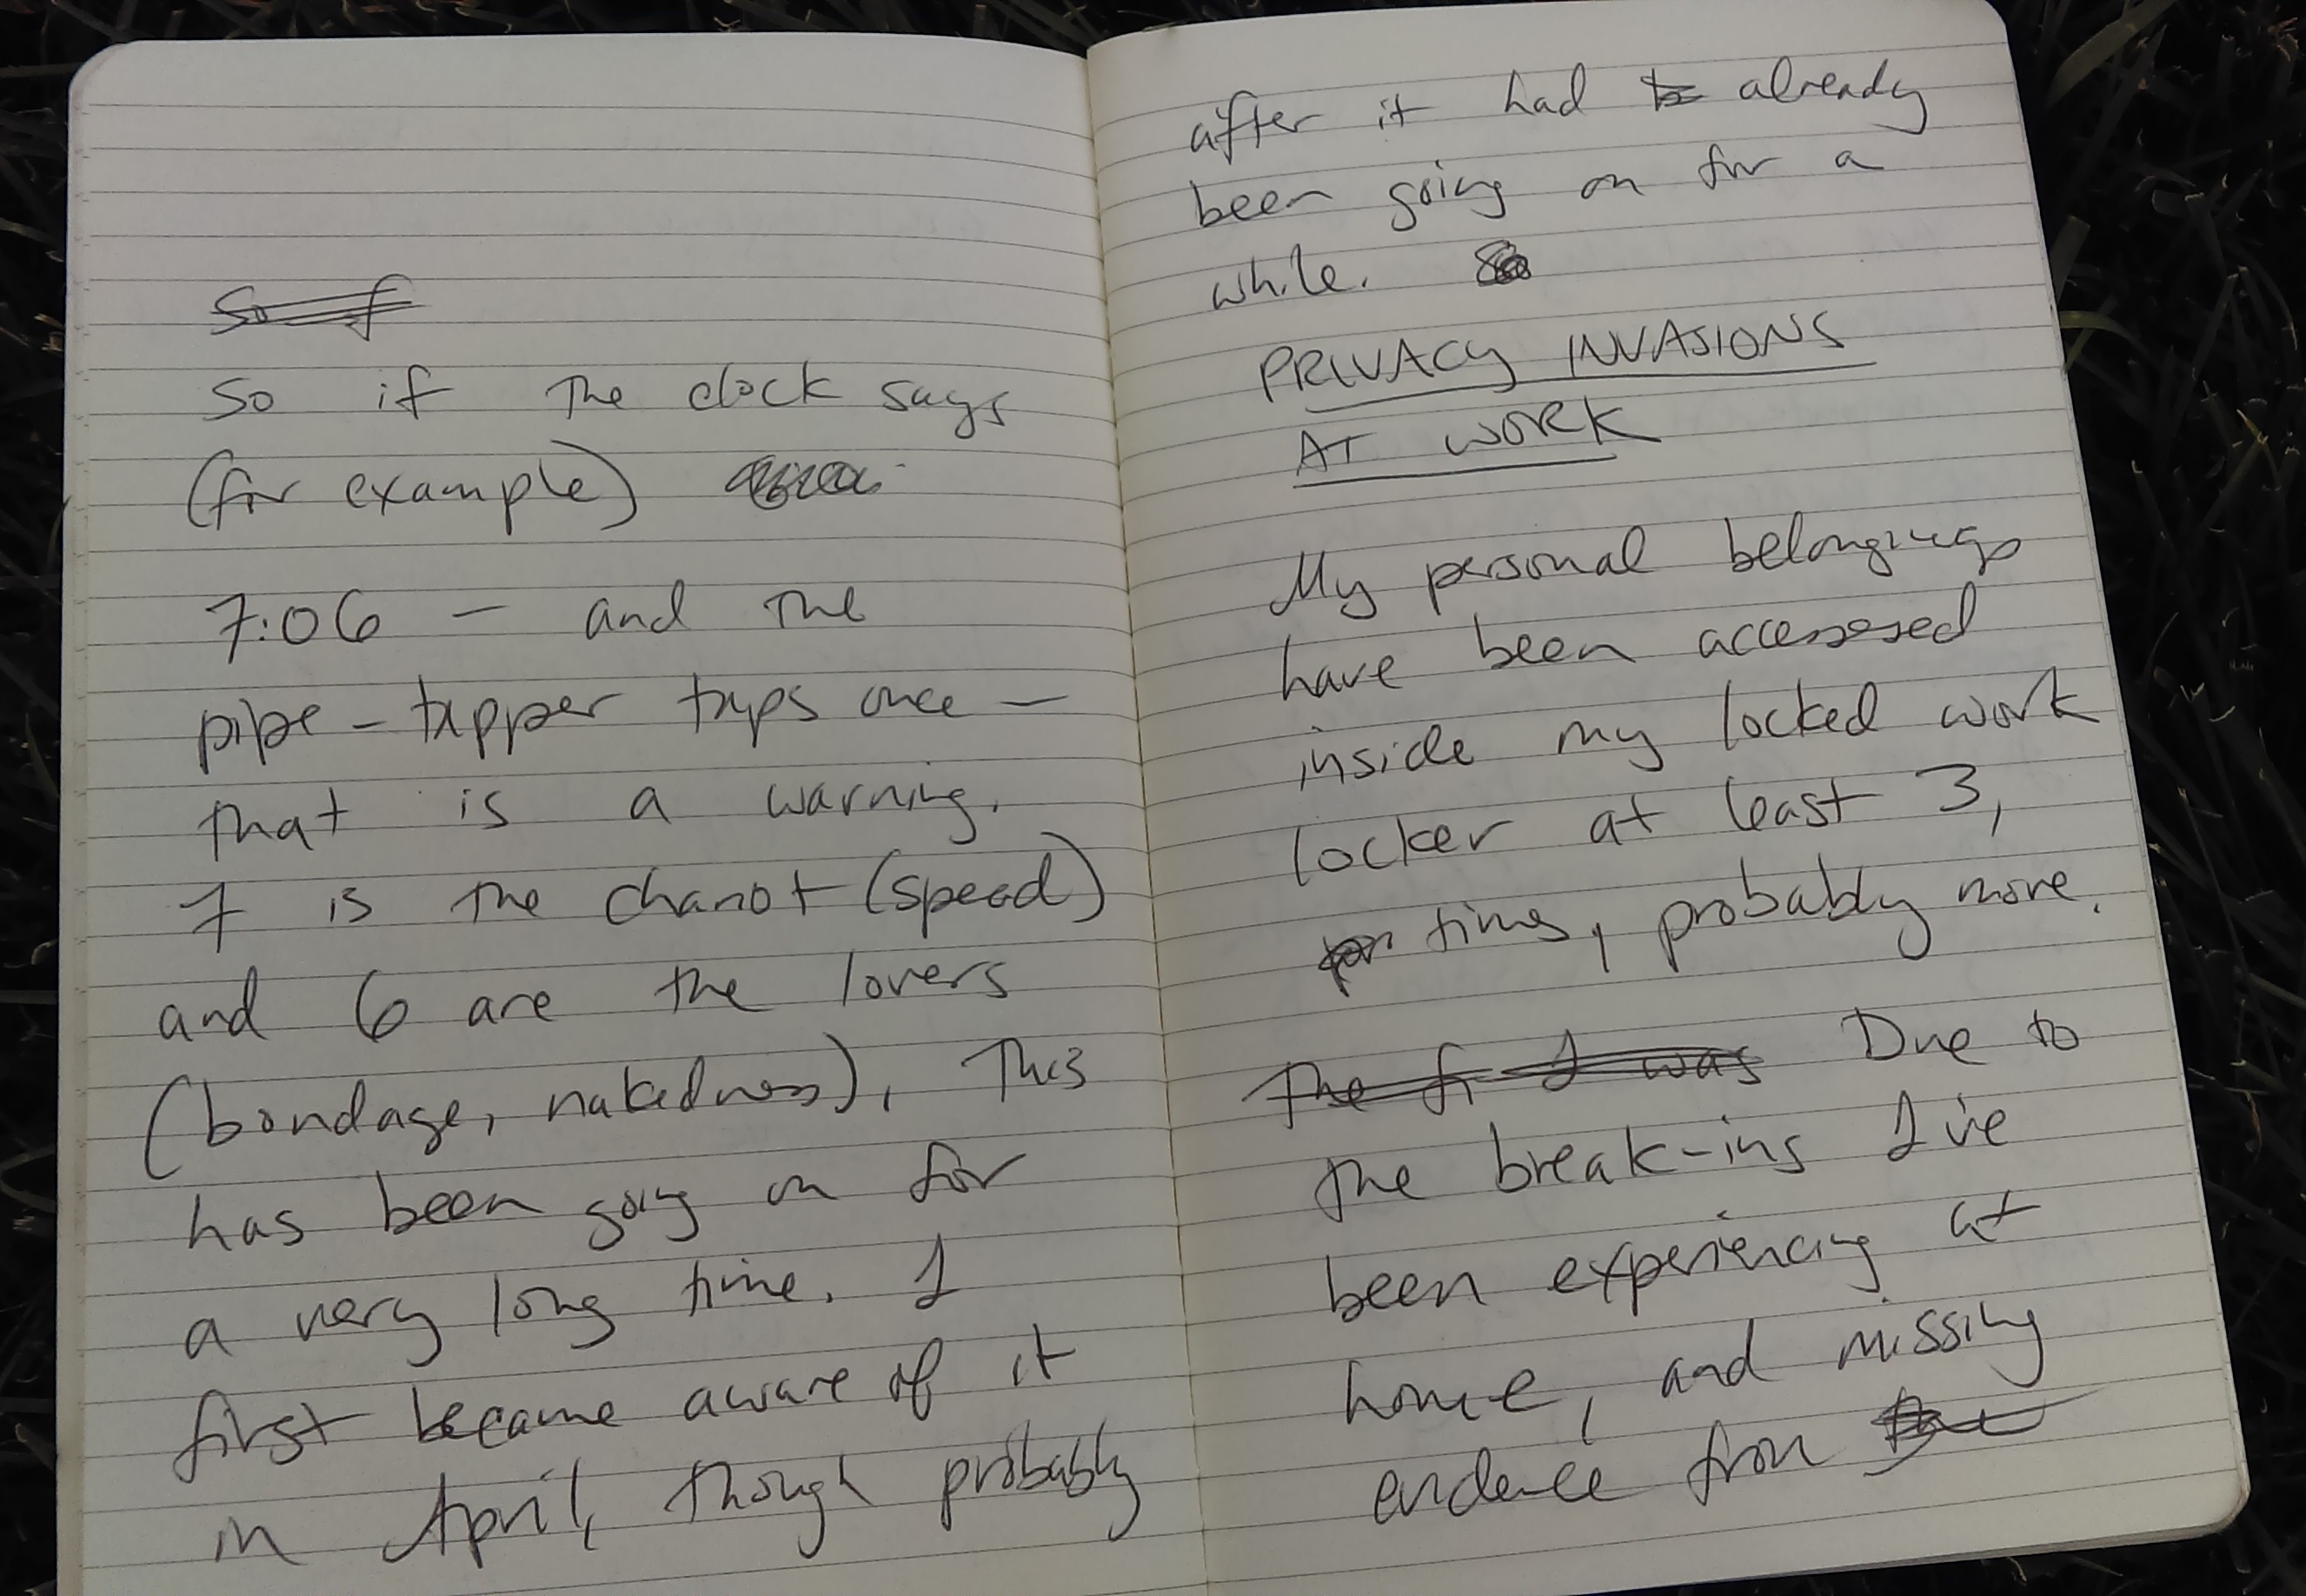 So f
So if the clock says
(for example)
7:06 — and the
pipe-tapper taps once —
that is a warning.
7 is the chariot (speed)
and 6 are the lovers
(bondage, nakedness), This
has been going on for
a very long time. I
first became aware of it
in April, though probably
after it had be already
been going on for a
while. So
PRIVACY INVASIONS
AT WORK
My personal belongings
have been accessesed
inside my locked work
locker at least 3,
times, probably more.
The fi I was Due to
the break-ins I've
been experiencing at
home, and missing
evidence from